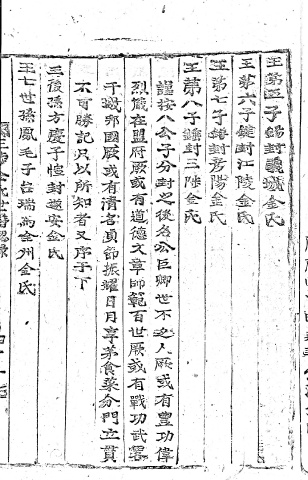 王第五子錫封義城金氏
王第六子鍵封江陵金氏
王第七子鐥封彥陽金氏
王第八子鍾封三陟金氏
謹按八公子分封之後名公巨卿世不乏人厥或有豊功偉
烈藏在盟府厥或有道德文章師範百世厥或有戰功武畧
干城邦國厥或有清名貞節振耀日月享茅食菜分門立貫
不可勝記只以所知者又序于下
三後孫方慶子愃封遂安金氏
王七世孫鳳毛子台瑞為全州金氏